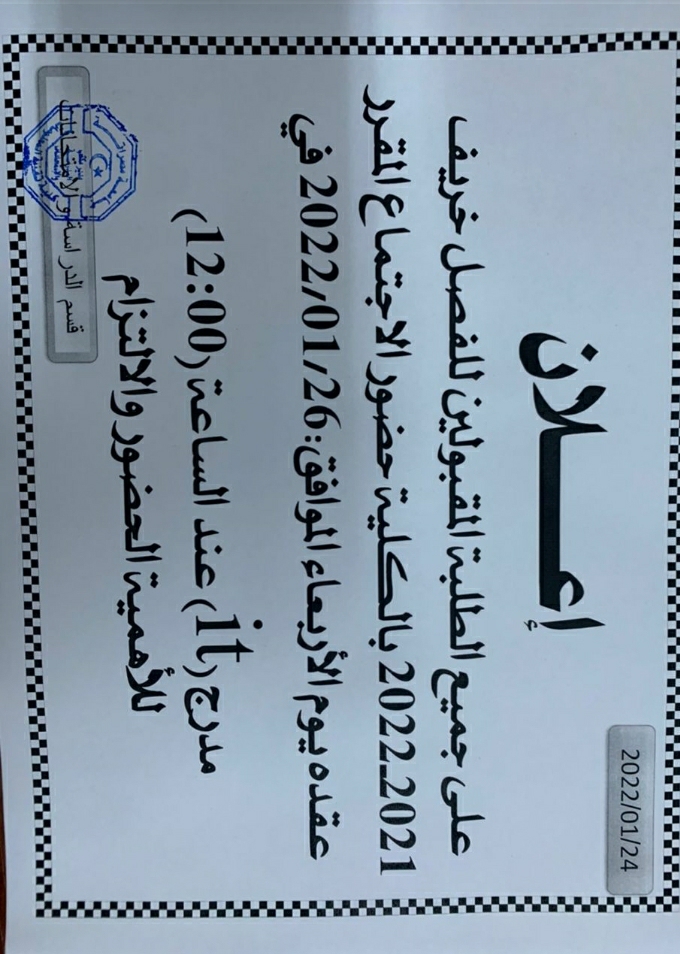 2022/01/24
إعـــلان
على جميع الطلبة المقبولين للفصل خريف
2021ـ2022 بالكلية حضور الاجتماع المقرر
عقده يوم الأربعاء الموافق:2022/01/26 في
مدرج (it) عند الساعة (12:00)
للأهمية الحضور والالتزام
قسم الدراسة والامتحانات